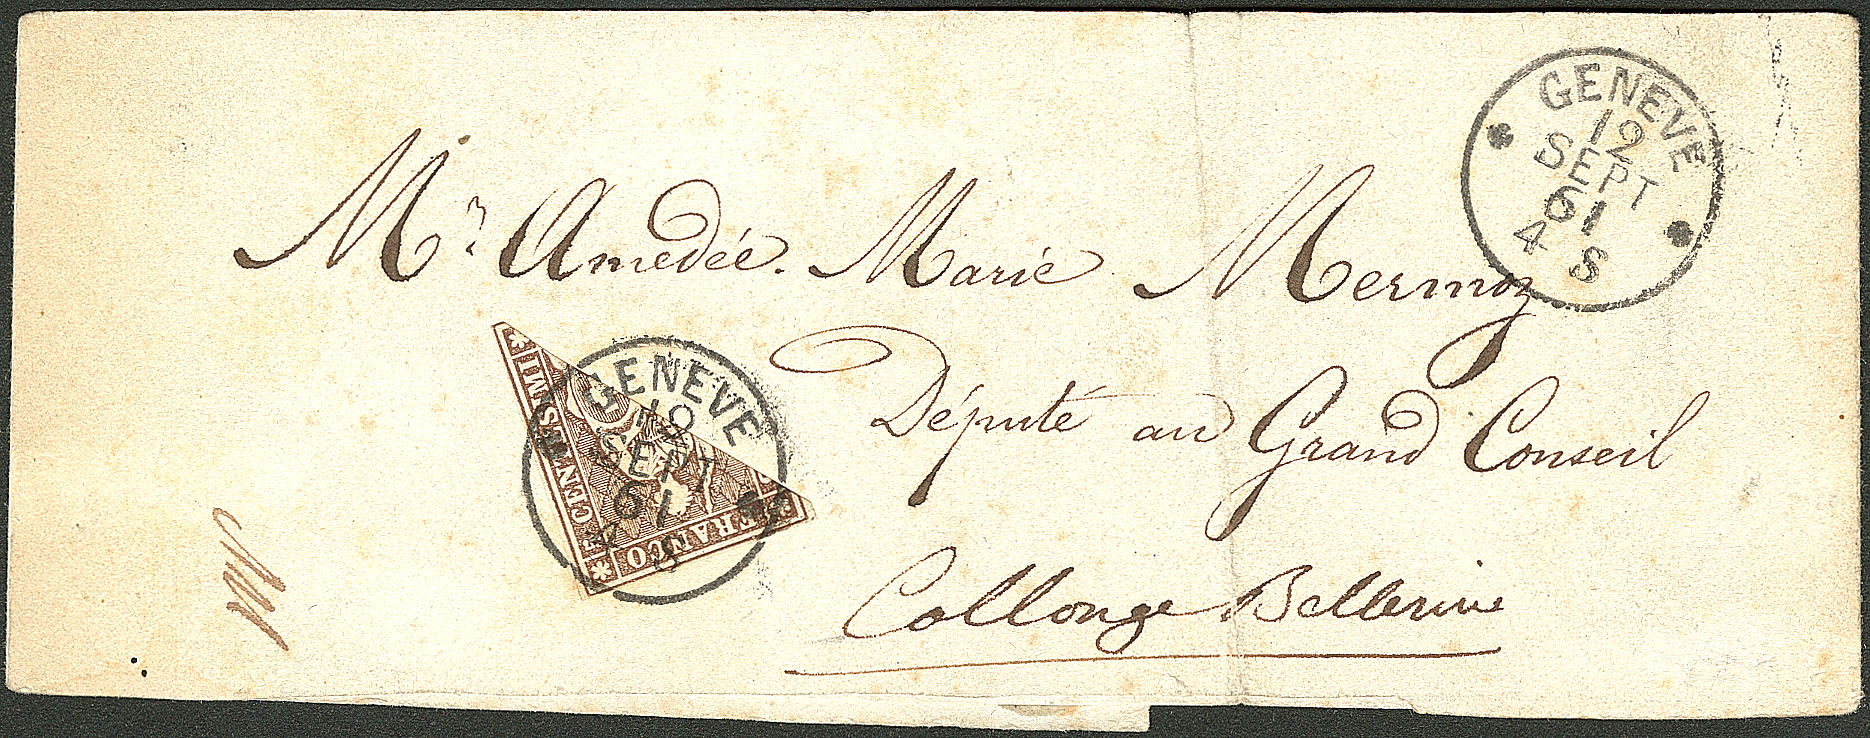 GENEVE
12
SEPT
61
4 S
Mr Amedée. Marie Mermoz
Député au Grand Conseil
Collonge Bellerive
GENEVE
12
SEPT
61
4 S
CENTESIMI
FRANCO